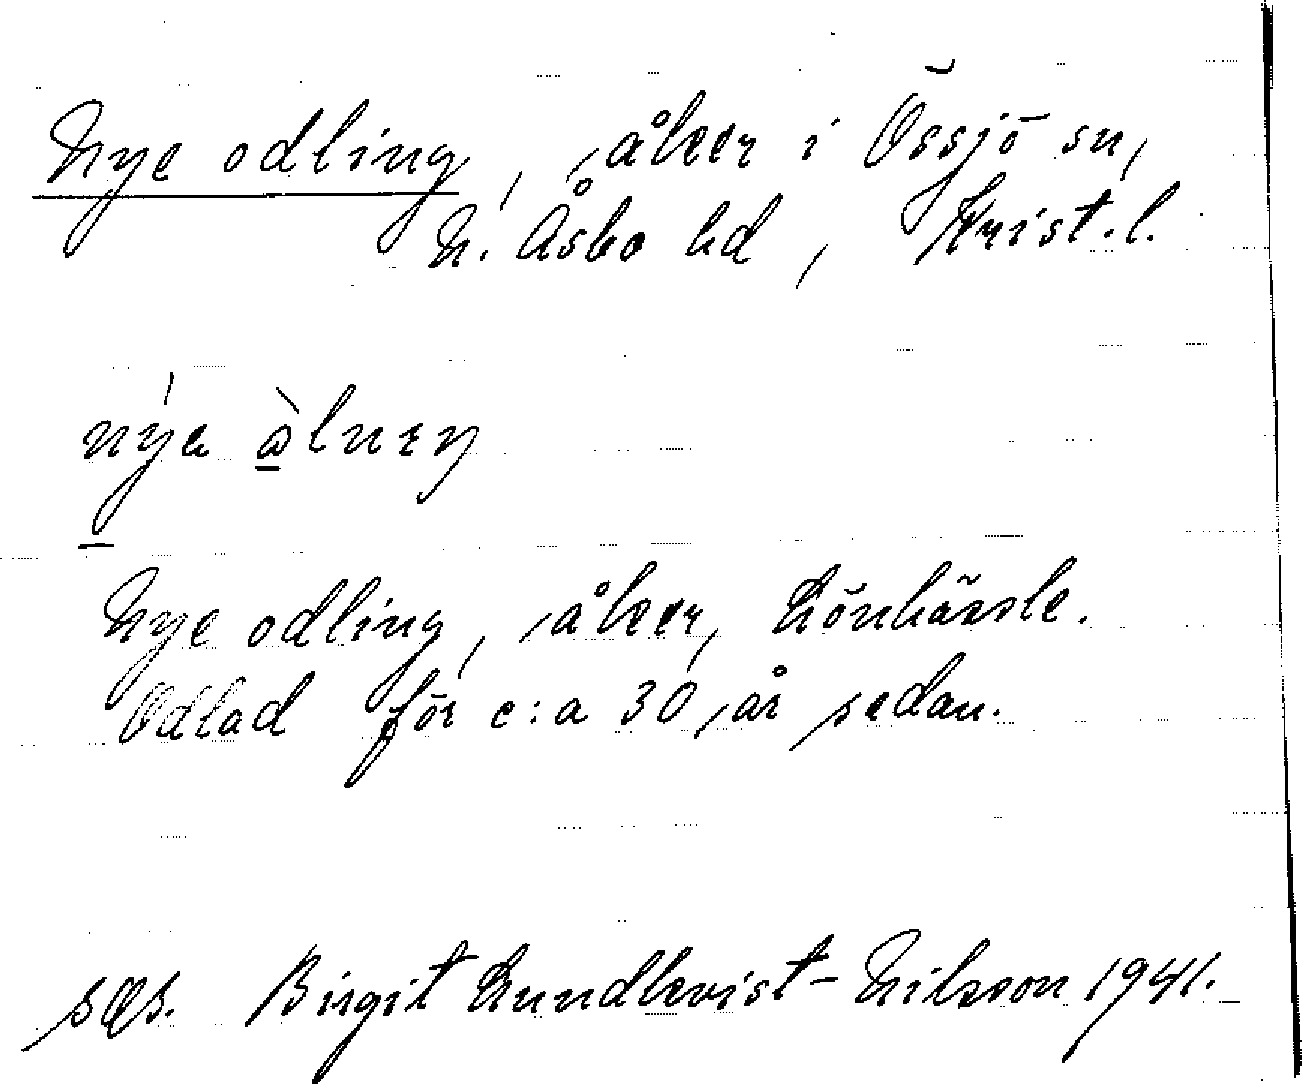 Nye odling, åker i Össjö sn,
N. Åsbo hd, Krist. l.
Nye odling, åker, Lönhässle.
Odlad för c:a 30 år sedan.
Birgit Lundkvist-Nilsson 1941.